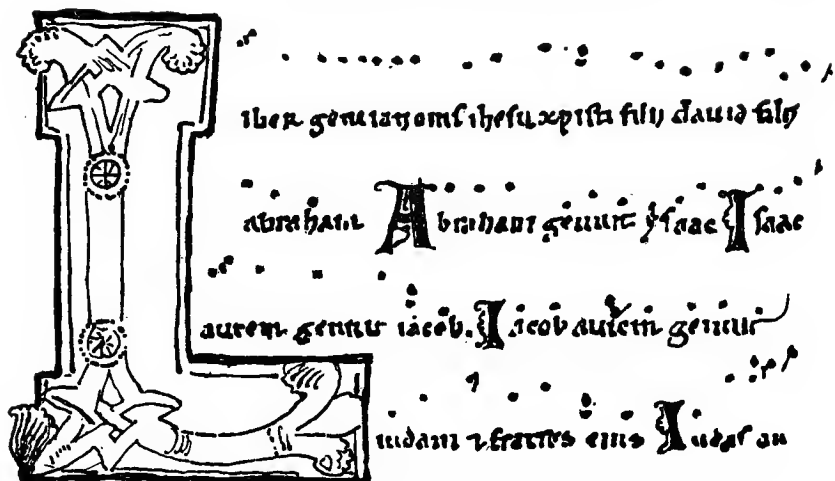 Liber generationis ihesu xpisti filij dauid filij
abraham Abraham genuit ysaac Isaac
autem genuit iacob. Iacob autem genuit
iudam ⁊ fratres eius Iudas au